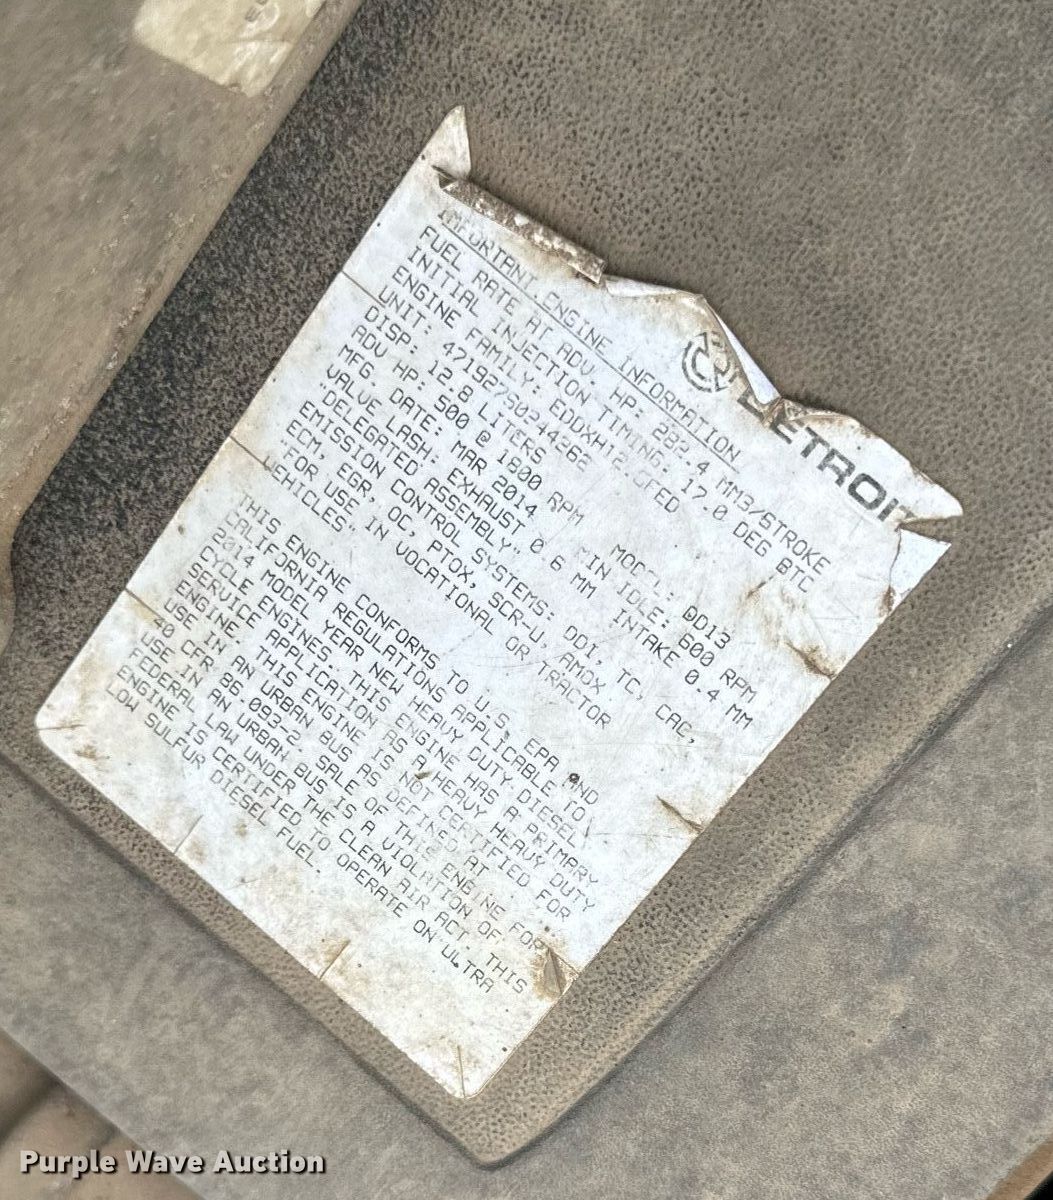 DETROIT
IMPORTANT ENGINE INFORMATION
FUEL RATE AT ADV. HP: 282.4 MM3/STROKE
INITIAL INJECTION TIMING: 17.0 DEG BTC
ENGINE FAMILY: EDDXH12.8FED
UNIT: 471927S0244262 MODEL: DD13
DISP: 12.8 LITERS
ADV HP: 500 @ 1800 RPM MIN IDLE: 600 RPM
MFG. DATE: MAR 2014
VALVE LASH: EXHAUST 0.6 MM INTAKE 0.4 MM
"DELEGATED ASSEMBLY"
EMISSION CONTROL SYSTEMS: DDI, TC, CAC,
ECM, EGR, OC, PTOX, SCR-U, AMOX
"FOR USE IN VOCATIONAL OR TRACTOR
VEHICLES"
THIS ENGINE CONFORMS TO U.S. EPA AND
CALIFORNIA REGULATIONS APPLICABLE TO
2014 MODEL YEAR NEW HEAVY DUTY DIESEL
CYCLE ENGINES. THIS ENGINE HAS A PRIMARY
SERVICE APPLICATION AS A HEAVY HEAVY DUTY
ENGINE. THIS ENGINE IS NOT CERTIFIED FOR
USE IN AN URBAN BUS AS DEFINED AT
40 CFR 86.093-2. SALE OF THIS ENGINE FOR
USE IN AN URBAN BUS IS A VIOLATION OF
FEDERAL LAW UNDER THE CLEAN AIR ACT. THIS
ENGINE IS CERTIFIED TO OPERATE ON ULTRA
LOW SULFUR DIESEL FUEL.
Purple Wave Auction